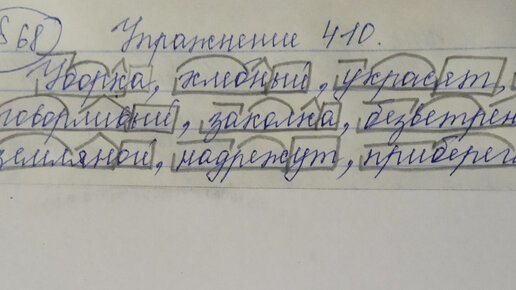 § 68 Упражнение 410.
Уборка, хлебный, украсят,
говорливый, заколка, безветрен
земляной, надрежут, приберег